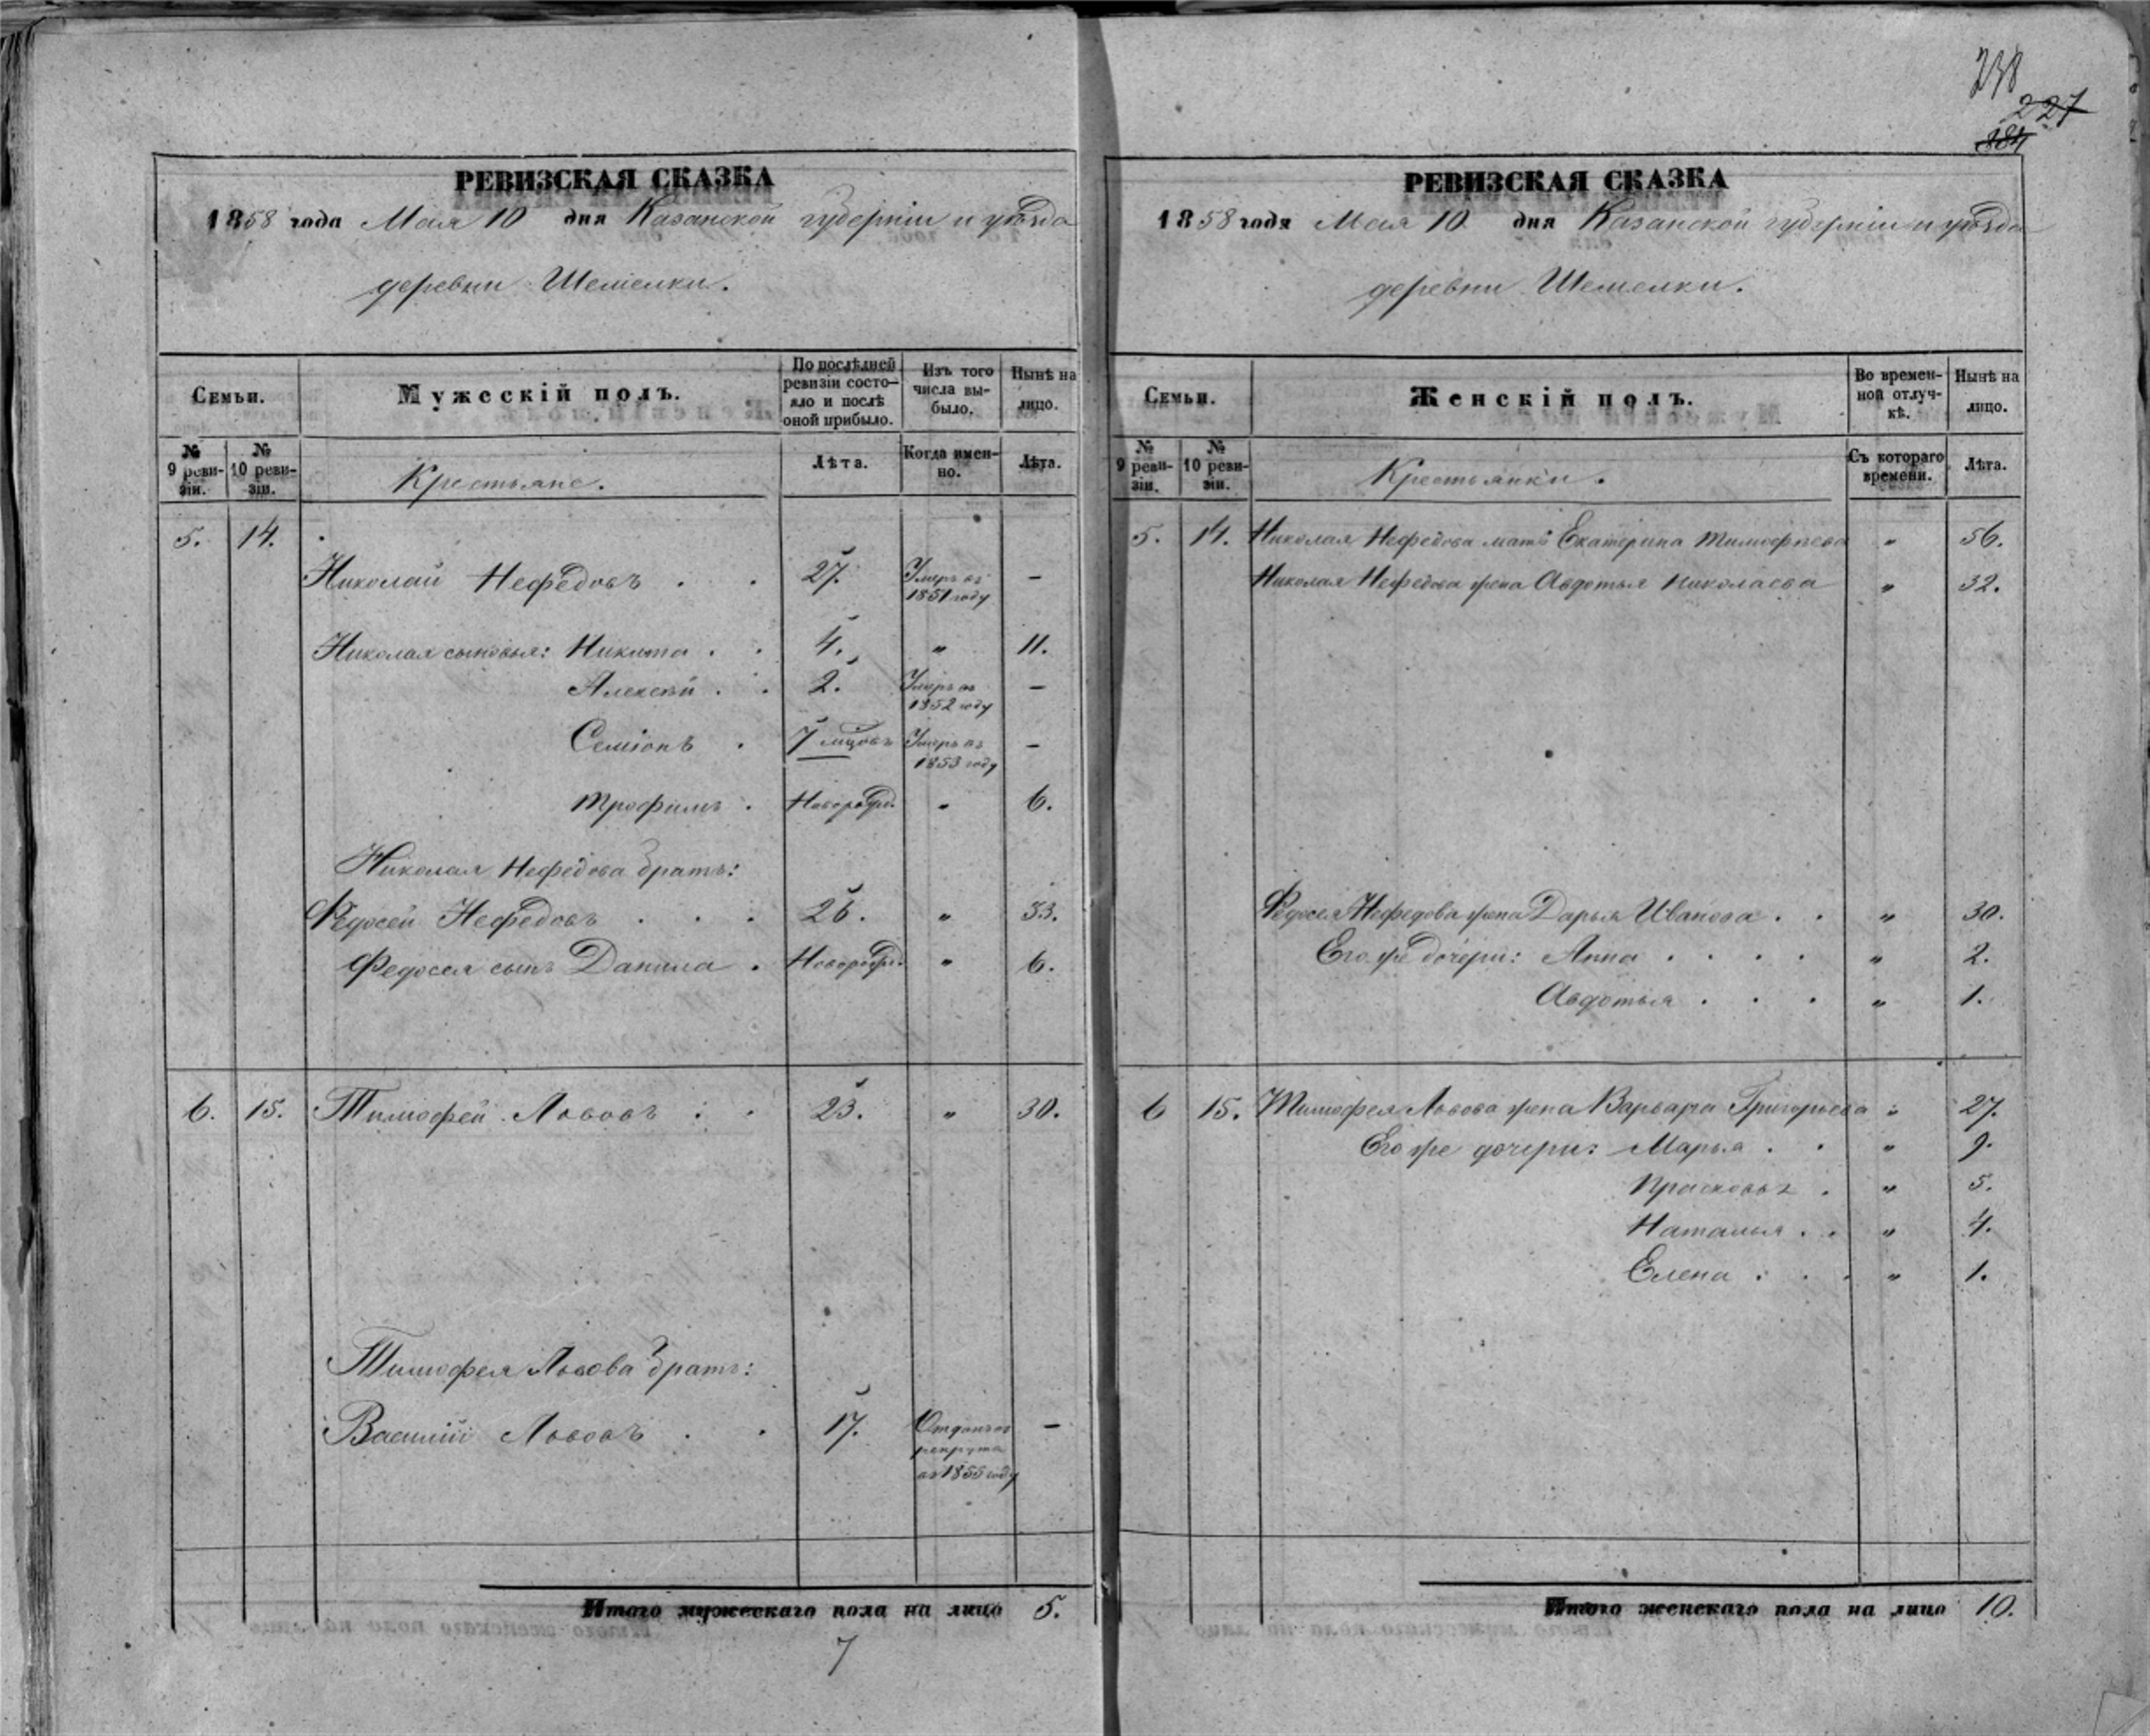 238
227
184
РЕВИЗСКАЯ СКАЗКА
1858 года Мая 10 дня Казанской губерніи и уѣзда
деревни Шемелки.
Семьи.
Мужескій полъ.
По послѣдней ревизіи состояло и послѣ оной прибыло.
Изъ того числа выбыло.
Нынѣ на лицо.
№ 9 ревизіи.
№ 10 ревизіи.
Крестьяне.
Лѣта.
Когда именно.
Лѣта.
5. 14.
Николай Нефедовъ . . 27. Умеръ въ 1851 году —
Николая сыновья: Никита . . 4. " 11.
Алексѣй . . 2. Умеръ въ 1852 году —
Семіонъ . 7 мцовъ Умеръ въ 1853 году —
Трофимъ . Новорожд. " 6.
Николая Нефедова братъ:
Федосей Нефедовъ . . . 26. " 33.
Федосея сынъ Данила . Новорожд. " 6.
6. 15. Тимофей Львовъ . . 23. " 30.
Тимофея Львова братъ:
Василій Львовъ . . 17. Отданъ въ рекруты въ 1855 году —
Итого мужескаго пола на лицо 5.
7
РЕВИЗСКАЯ СКАЗКА
1858 года Мая 10 дня Казанской губерніи и уѣзда
деревни Шемелки.
Семьи.
Женскій полъ.
Во временной отлучкѣ.
Нынѣ на лицо.
№ 9 ревизіи.
№ 10 ревизіи.
Крестьянки.
Съ котораго времени.
Лѣта.
5. 14. Николая Нефедова мать Екатерина Тимофѣева " 56.
Николая Нефедова жена Авдотья Николаева " 32.
Федосея Нефедова жена Дарья Иванова . . " 30.
Его же дочери: Анна . . . . " 2.
Авдотья . . . " 1.
6 15. Тимофея Львова жена Варвара Григорьева " 27.
Его же дочери: Марья . . " 9.
Прасковья . " 5.
Наталья . . " 4.
Елена . . . " 1.
Итого женскаго пола на лицо 10.